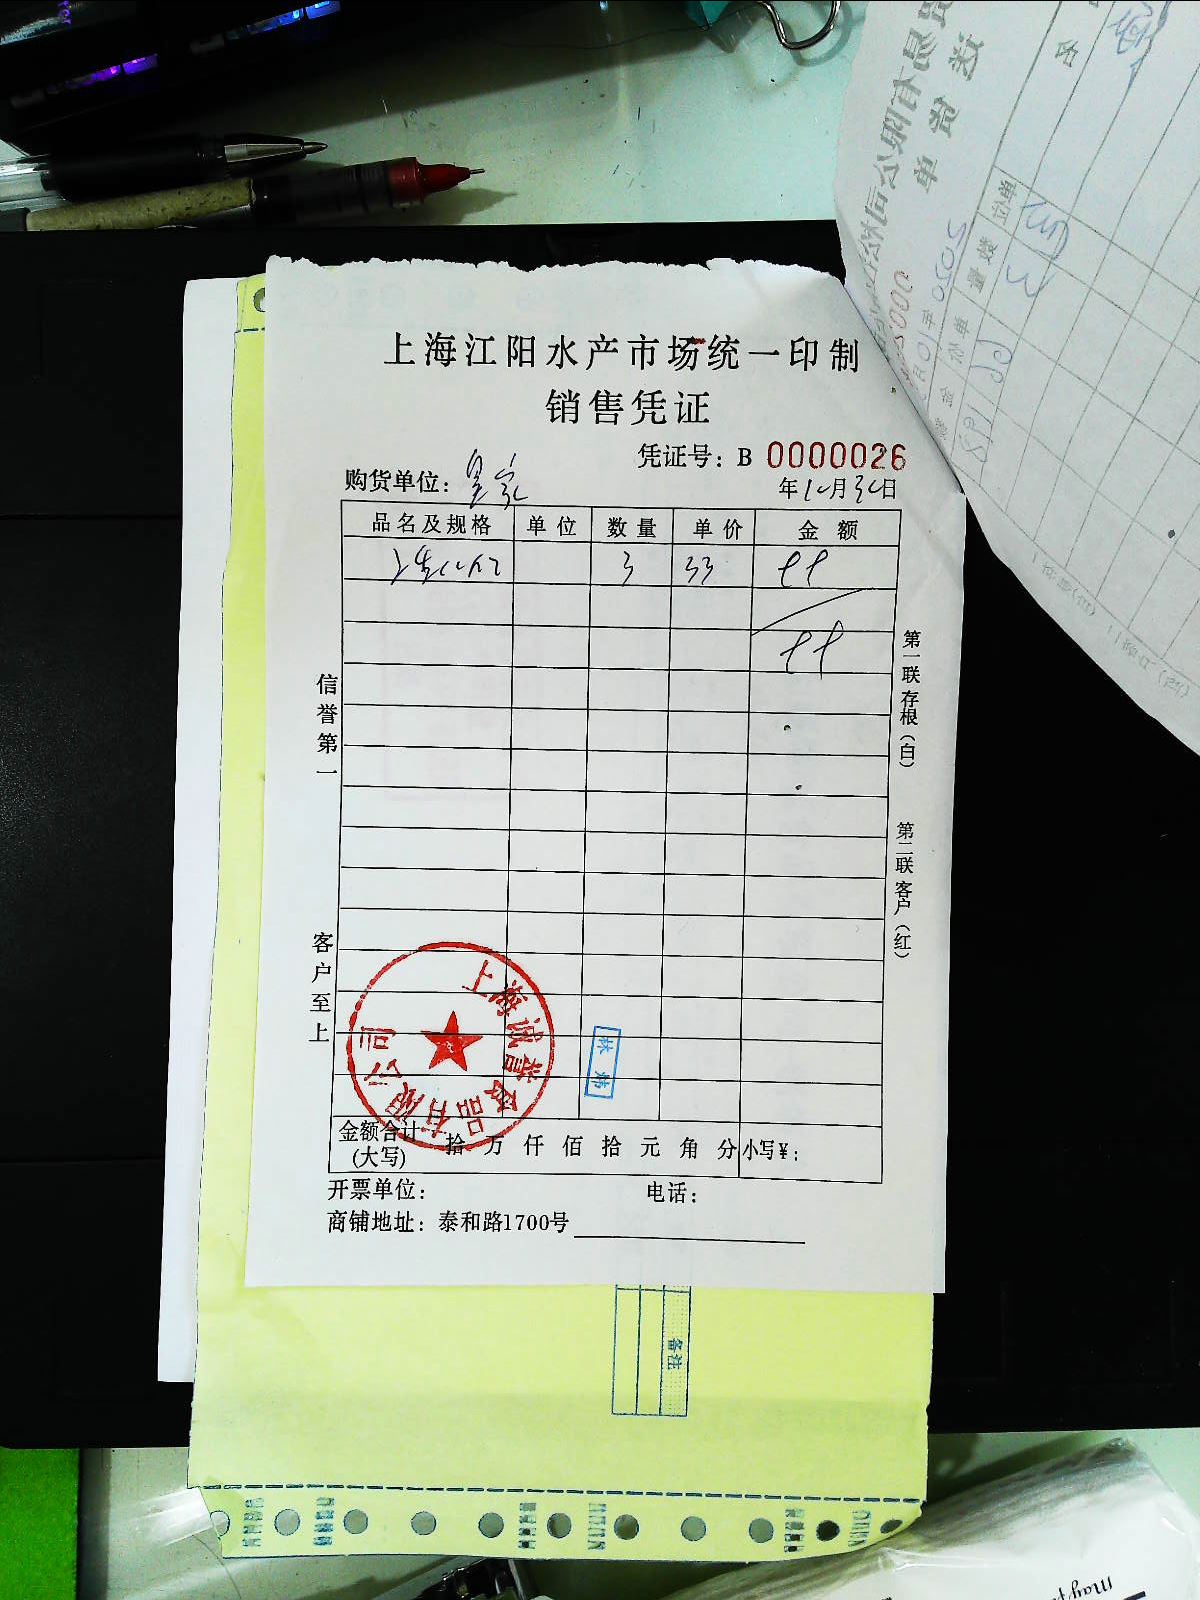 上海江阳水产市场统一印制
销售凭证
凭证号：B 0000026
购货单位：皇家
年10月30日
品名及规格 单位 数量 单价 金额
3 33 99
99
信誉第一
客户至上
第一联存根（白）
第二联客户（红）
上海诚誉食品有限公司
林炜
金额合计(大写) 拾 万 仟 佰 拾 元 角 分 小写¥：
开票单位： 电话：
商铺地址：泰和路1700号
备注